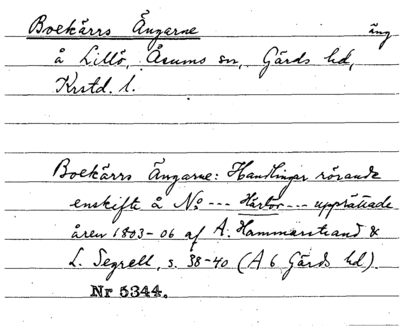 Boekärrs Ängarne äng
å Lillö, Åsums sn, Gärds hd,
Krstd. l.
Boekärrs Ängarne: Handlingar rörande
enskifte å No --- Hartor --- upprättade
åren 1803-06 af A. Hammarstrand &
L. Segrell, s. 38-40 (A 6 Gärds hd).
Nr 5344.